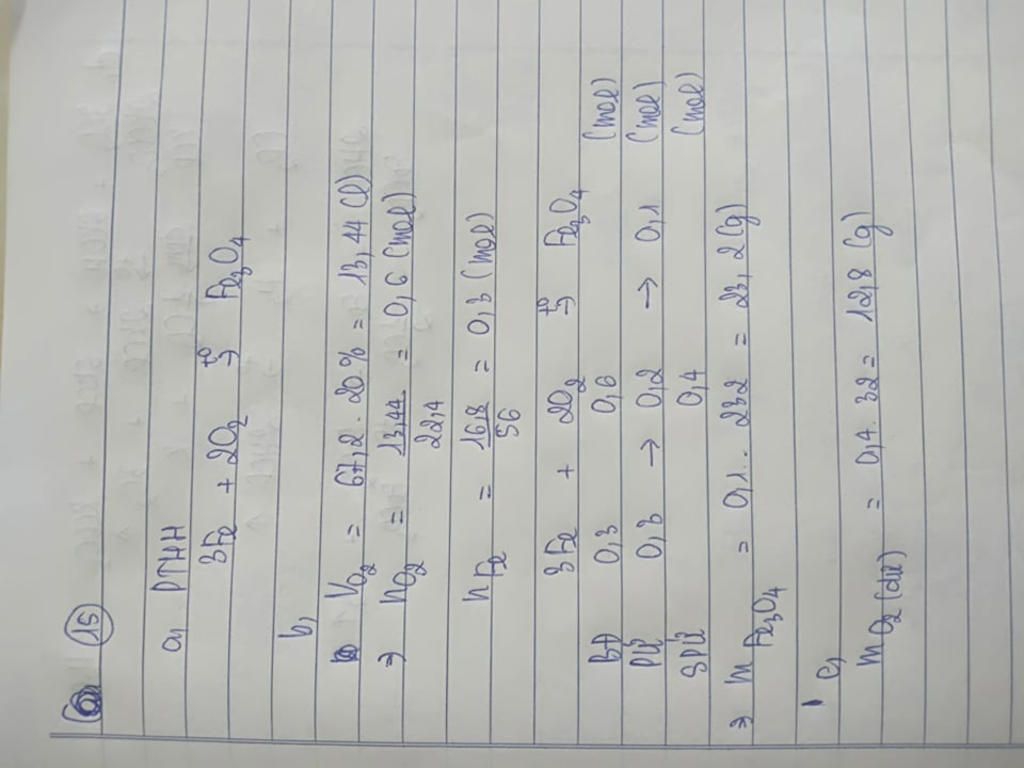 15
a, PTHH
3Fe + 2O2 t°→ Fe3O4
b,
VO2 = 67,2 . 20% = 13,44 (l)
⇒ nO2 = 13,44 / 22,4 = 0,6 (mol)
nFe = 16,8 / 56 = 0,3 (mol)
3Fe + 2O2 t°→ Fe3O4
BĐ 0,3 0,6 (mol)
PƯ 0,3 → 0,2 → 0,1 (mol)
SPƯ 0,4 (mol)
⇒ mFe3O4 = 0,1 . 232 = 23,2 (g)
c,
mO2 (dư) = 0,4 . 32 = 12,8 (g)